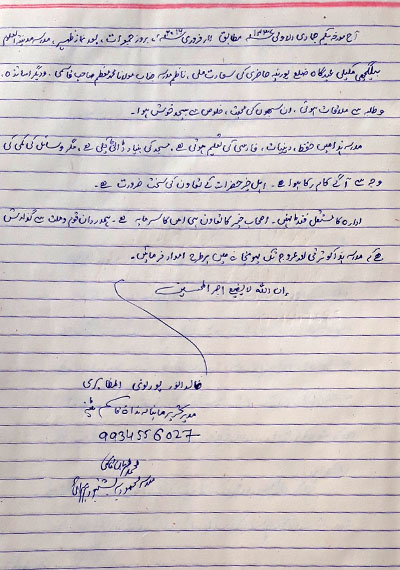 آج مورخہ یکم جمادی الاولیٰ ۱۴۳۷ھ مطابق ۱۱ فروری ۲۰۱۶ء، بروز جمعرات، بعد نماز ظہر، مدرسہ مدینۃ العلوم
عیدگاہ ضلع پورنیہ حاضری کی سعادت ملی، ناظم مدرسہ جناب مولانا محمد مظہر صاحب قاسمی، ودیگر اساتذہ،
وطلبہ سے ملاقات ہوئی، ان سبھوں کی محبت، خلوص سے بیحد خوشی ہوا۔
مدرسہ ہذا میں حفظ، دینیات، فارسی کی تعلیم ہوتی ہے، مسجد کی بنیاد ڈالی چکی ہے، مگر وسائل کی کمی کی
وجہ سے آگے کام رکا ہوا ہے۔ اہل خیر حضرات کے تعاون کی سخت ضرورت ہے۔
ادارہ کا مستقل فنڈ نہیں، اصحاب خیر کا تعاون ہی اس کا سرمایہ ہے۔ ہمدردان قوم وملت سے گذارش
ہے کہ مدرسہ ہذا کو ترقی اور عروج تک پہونچانے میں ہر طرح امداد فرمائیں۔
إن الله لا يضيع أجر المحسنين
خالد انور پورنوی المظاہری
مدیر تحریر ماہنامہ ندائے قاسم پٹنہ
9934556027